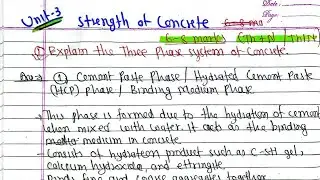 Date
Page
Unit-3 Strength of Concrete
6-8 marks (Th+N
① Explain the Three Phase System of Concrete
Ans → ① Cement Paste Phase / Hydrated Cement Paste
(HCP) phase / Binding Medium Phase
→ This phase is formed due to the hydration of cement
when mixed with water. It act as the binding
medium in concrete
→ Consists of hydration product such as C-SH gel,
calcium hydroxide, and ettringite
→ Binds fine and coarse aggregates together